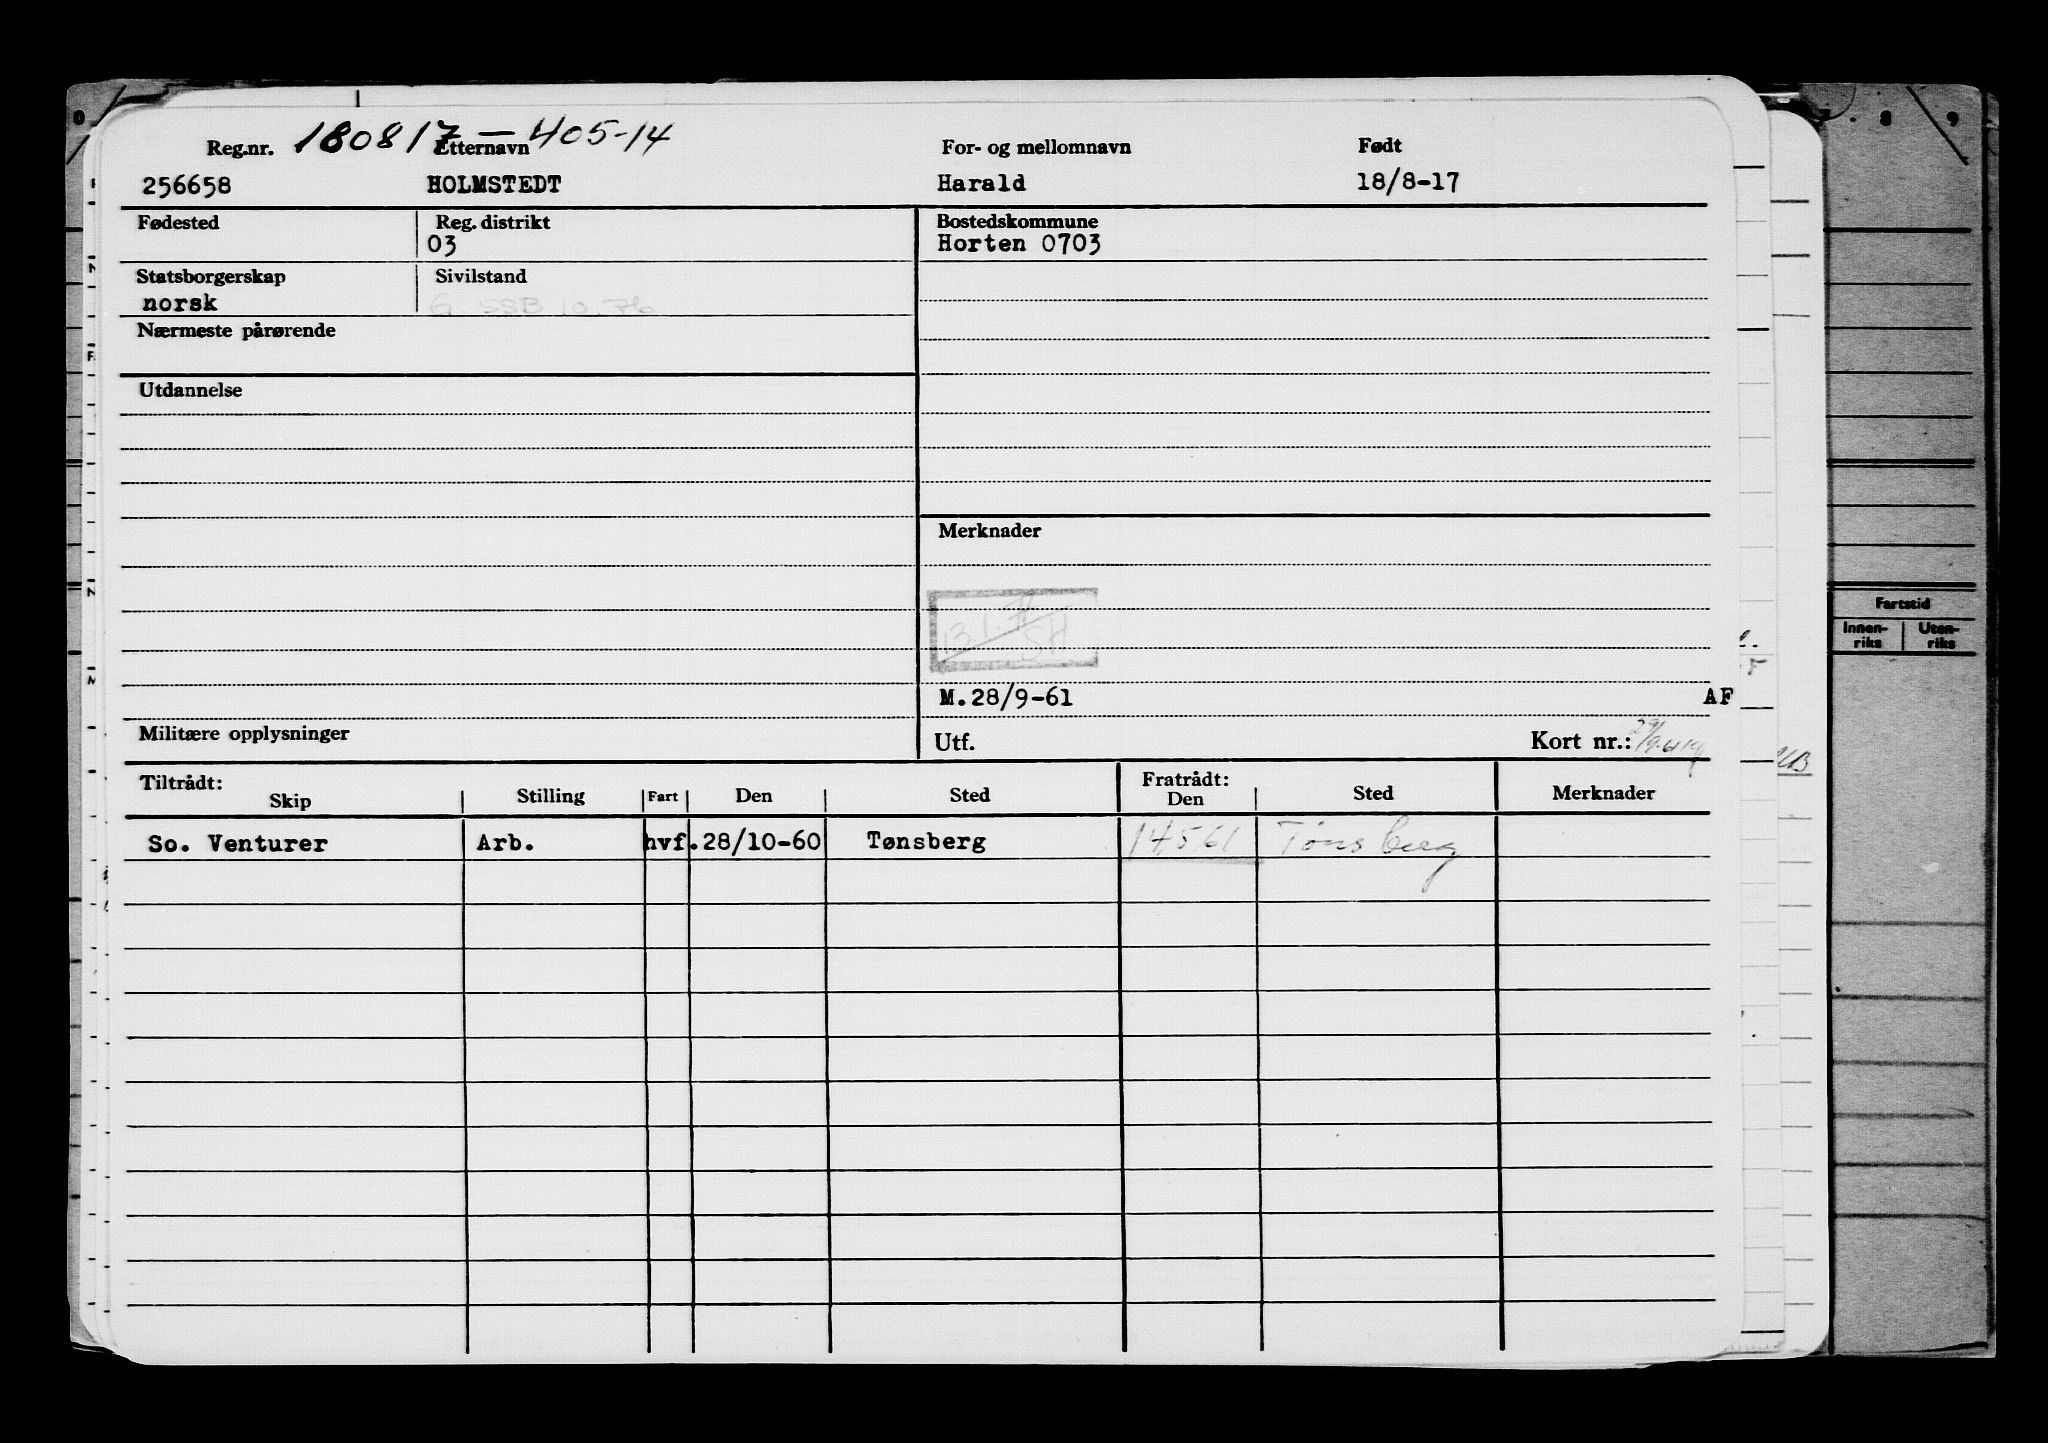 Reg.nr. 180817 — 405-14 Etternavn For- og mellomnavn Født
256658 HOLMSTEDT Harald 18/8-17
Fødested Reg. distrikt Bostedskommune
03 Horten 0703
Statsborgerskap Sivilstand
norsk G. SSB 10.76
Nærmeste pårørende
Utdannelse
Merknader
13.1.71
SH
M.28/9-61 AF
Militære opplysninger Utf. Kort nr.:
Tiltrådt: Fratrådt:
Skip Stilling Fart Den Sted Den Sted Merknader
So. Venturer Arb. hvf. 28/10-60 Tønsberg 14561 Tønsberg
8 9
Fartstid
Innen-riks Uten-riks